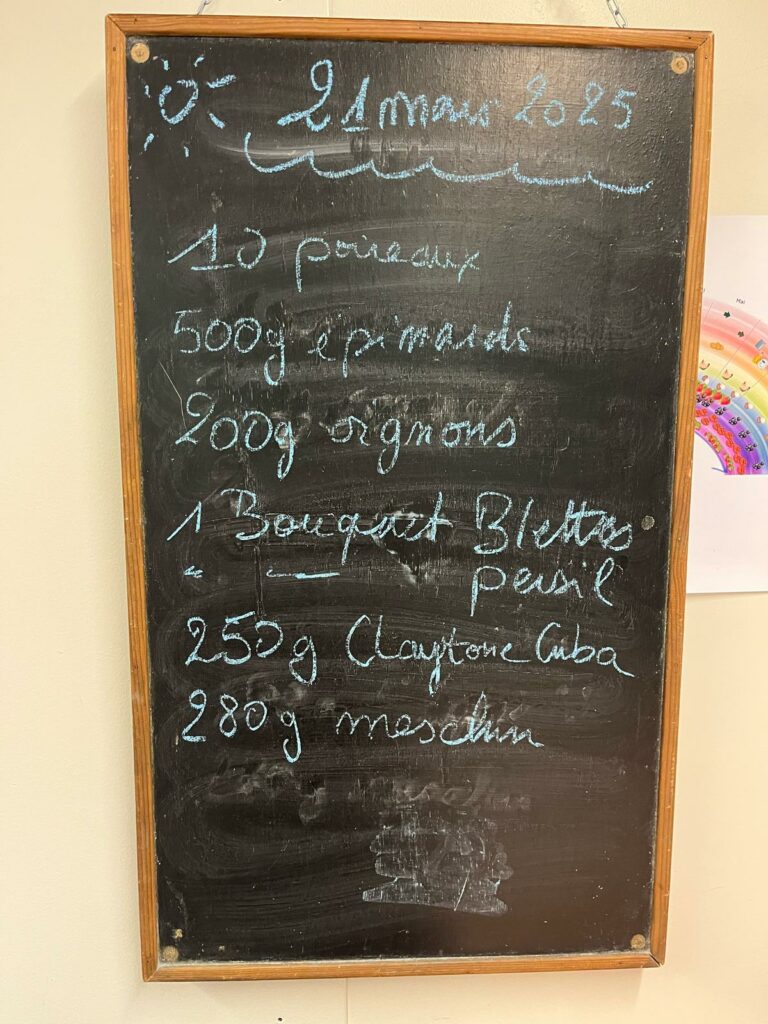 21 mars 2025
10 poireaux
500g épinards
200g oignons
1 Bouquet Blettes
" — persil
250g Claytone Cuba
280g mesclun